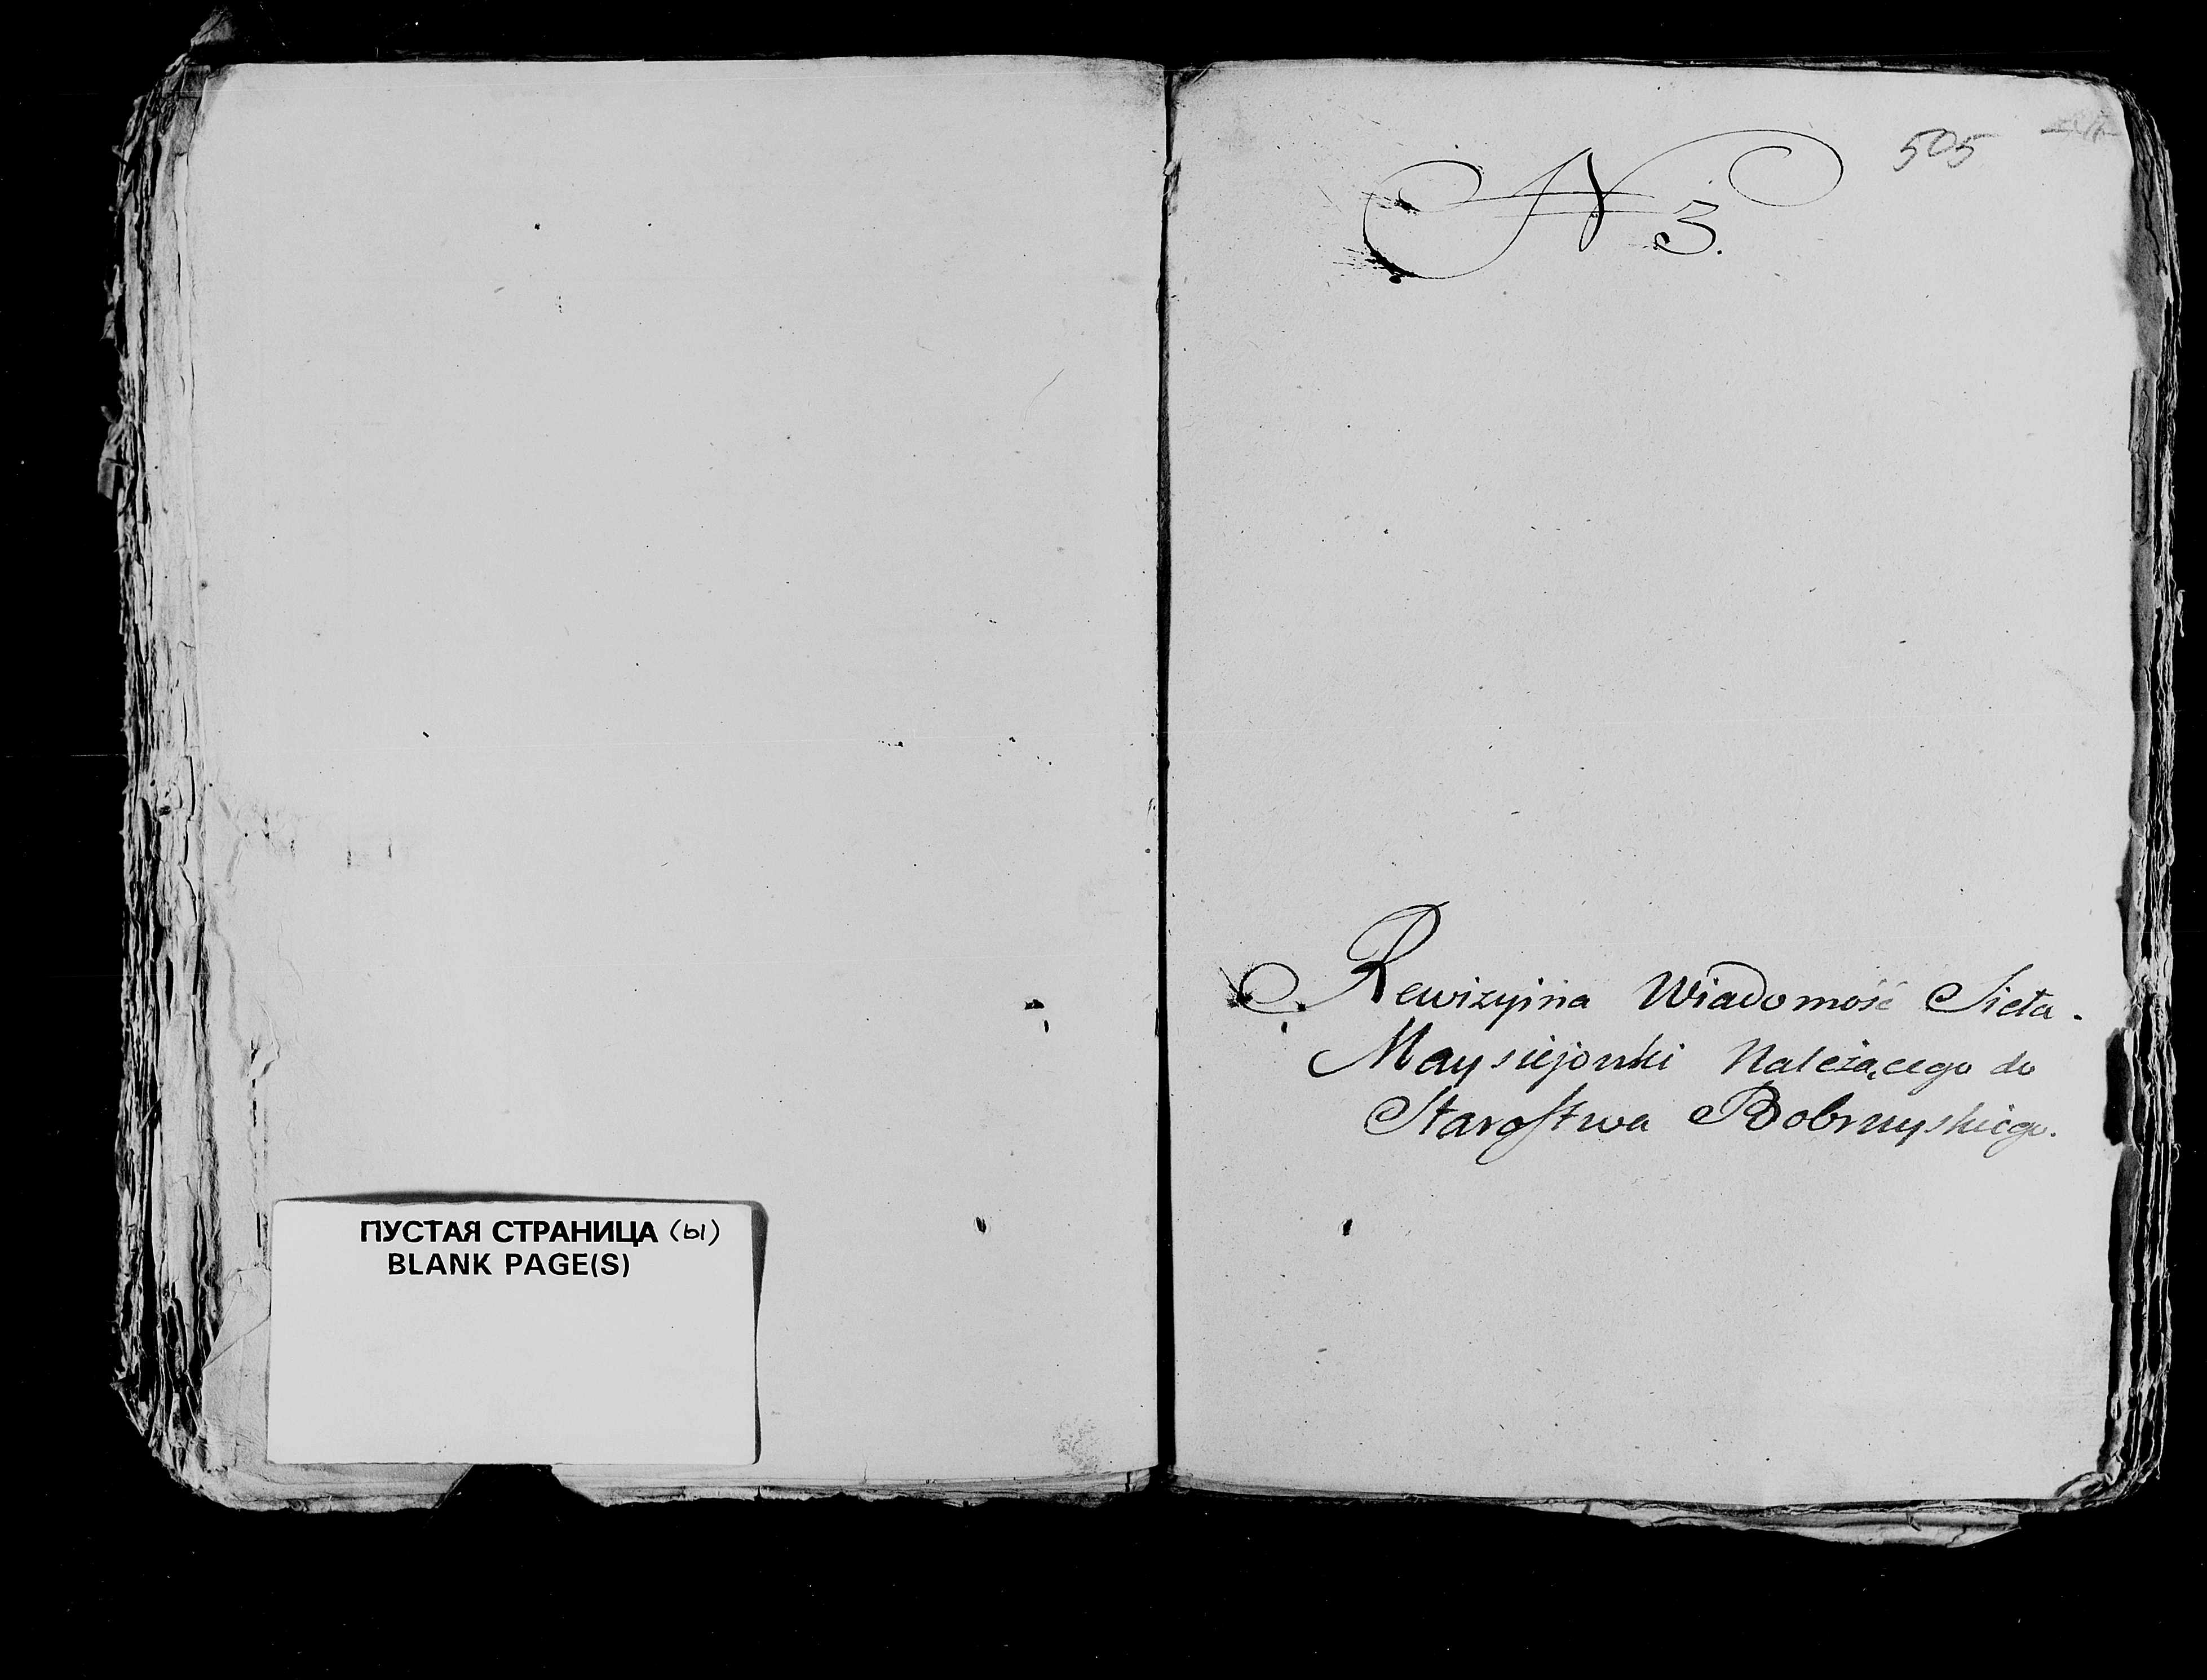 ПУСТАЯ СТРАНИЦА (ы)
BLANK PAGE(S)
505
N 3.
Rewizyina Wiadomość Sieła
Maysiejowki Należącego do
Starostwa Bobruyskiego.